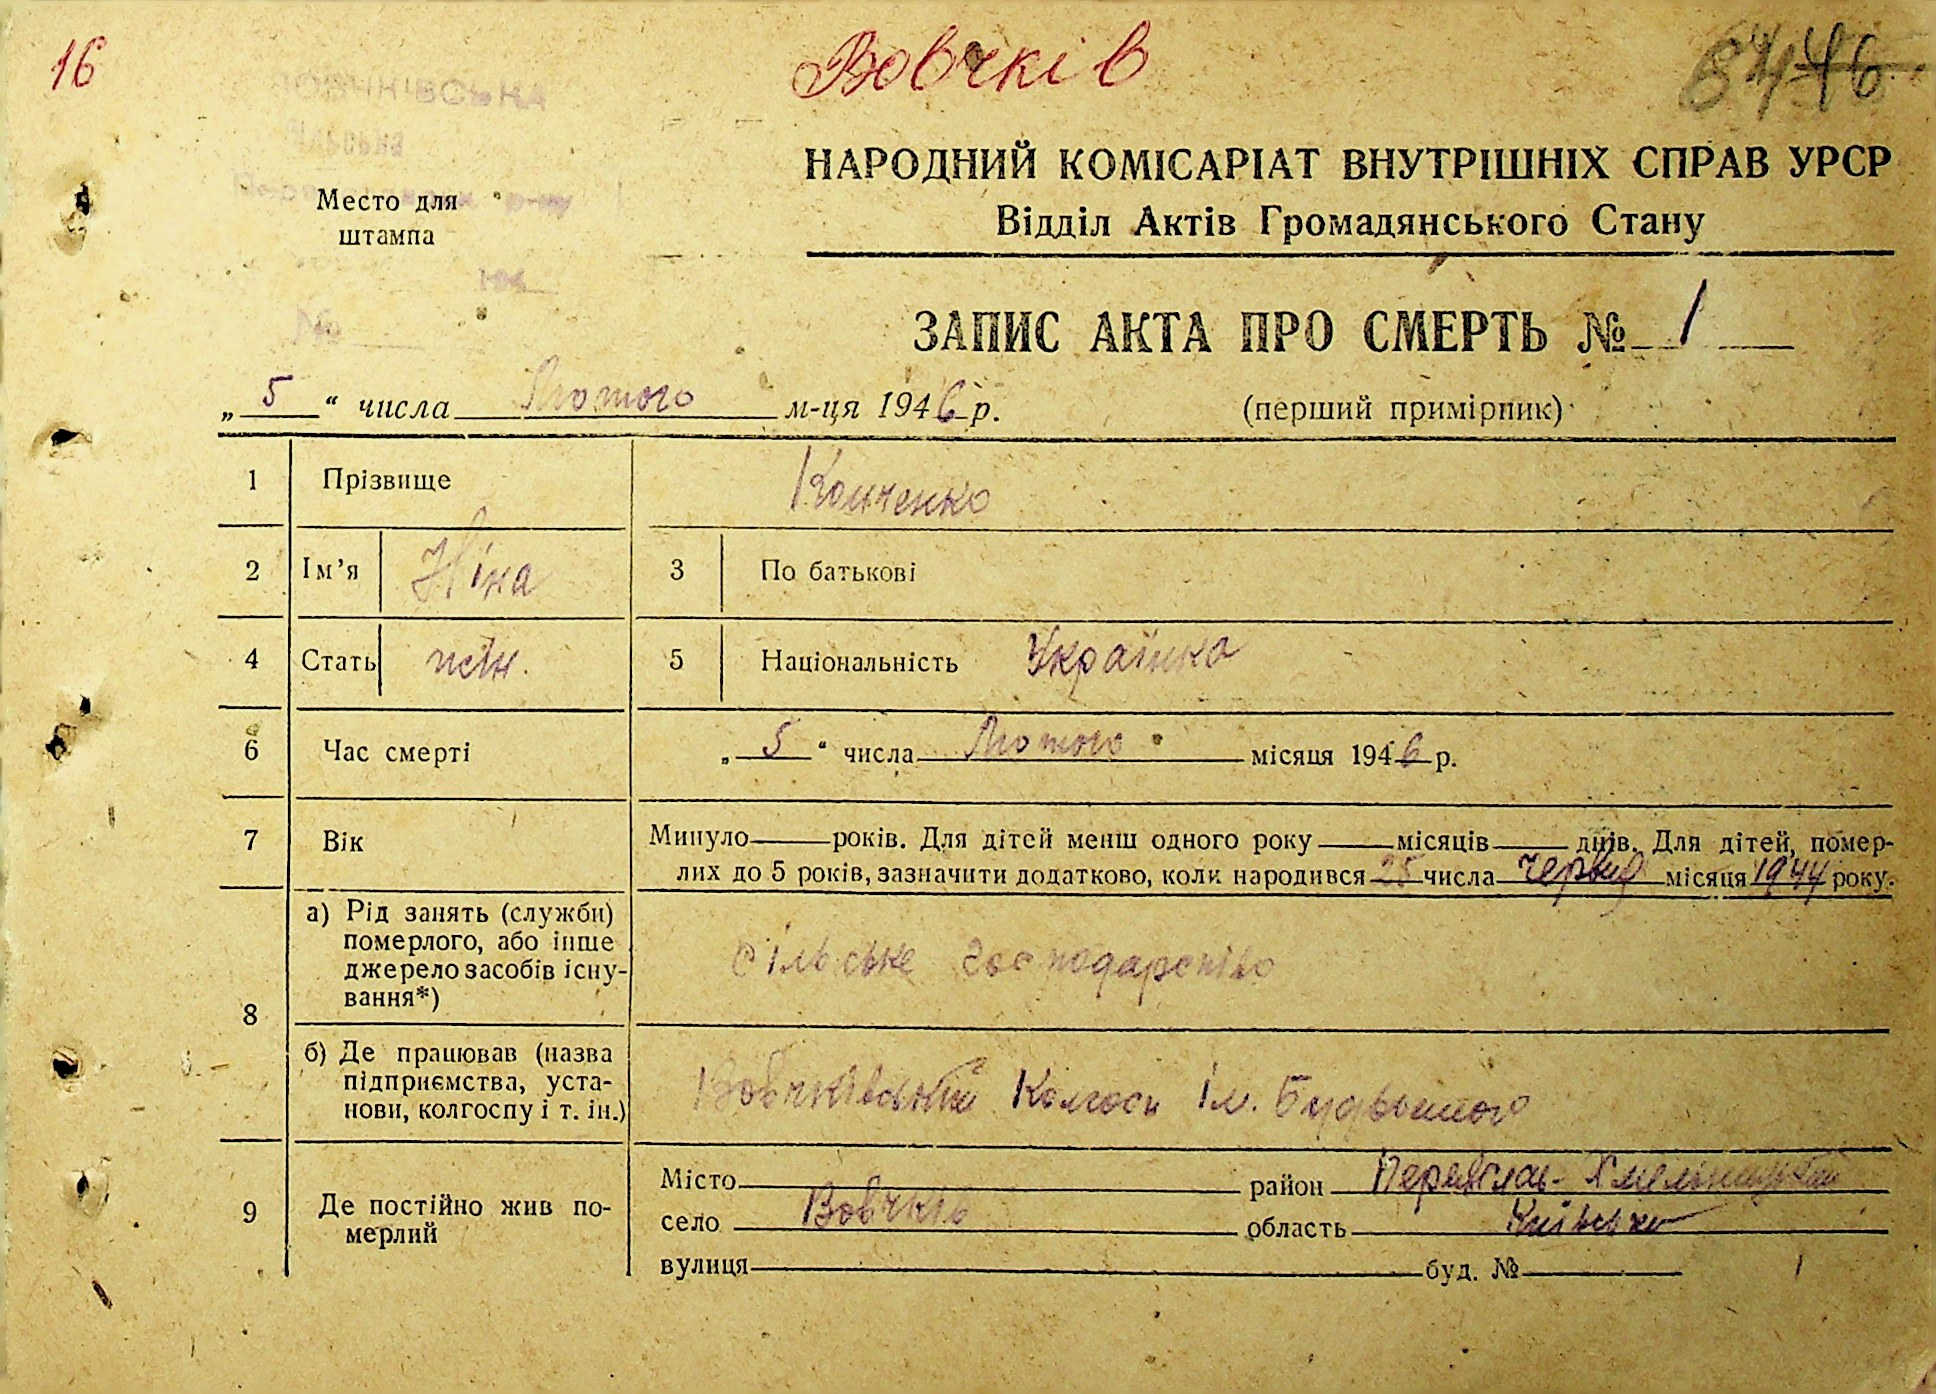 16
Вовчків
НАРОДНИЙ КОМІСАРІАТ ВНУТРІШНІХ СПРАВ УРСР
Відділ Актів Громадянського Стану
Место для
штампа
ЗАПИС АКТА ПРО СМЕРТЬ № 1
„ 5 “ числа Лютого м-ця 1946 р. (перший примірник)
1 Прізвище
2 Ім’я Ніна 3 По батькові
4 Стать жін. 5 Національність Українка
6 Час смерті „ 5 “ числа Лютого місяця 1946 р.
7 Вік Минуло років. Для дітей менш одного року місяців днів. Для дітей, помер-
лих до 5 років, зазначити додатково, коли народився 25 числа червня місяця 1944 року.
8 а) Рід занять (служби)
померлого, або інше
джерело засобів існу-
вання*)
сільське господарство
б) Де працював (назва
підприємства, уста-
нови, колгоспу і т. ін.)
Вовчківський Колгосп Ім.
9 Де постійно жив по-
мерлий
Місто район Переяслав-Хмельницький
село Вовчків область Київська
вулиця буд. №